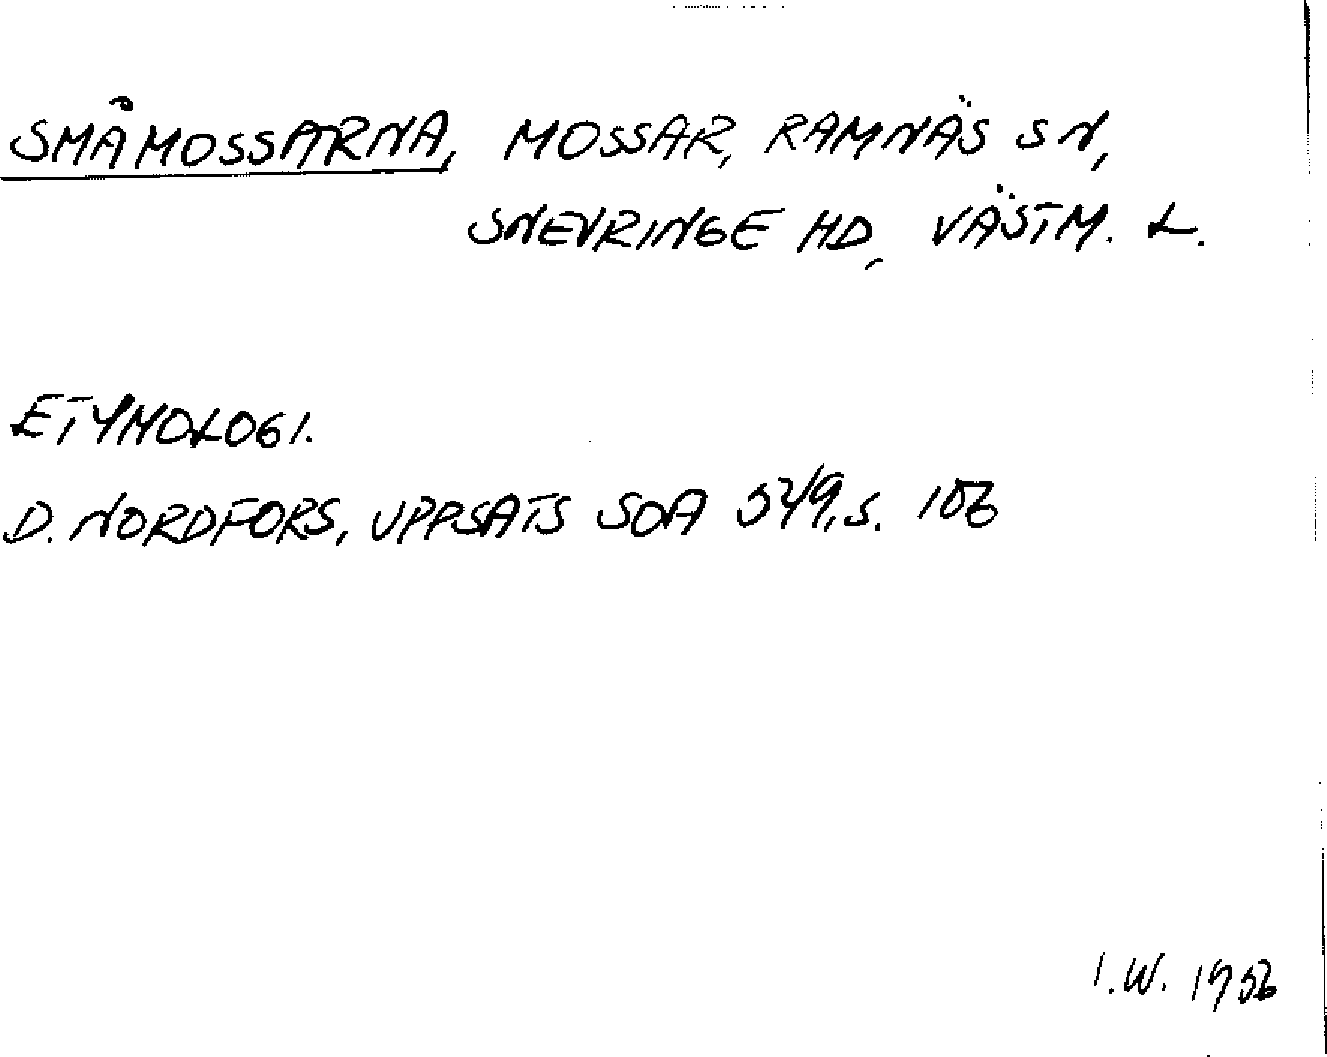 SMÅMOSSARNA, MOSSAR, RAMNÄS SN,
SNEVRINGE HD, VÄSTM. L.
ETYMOLOGI.
D. NORDFORS, UPPSATS SOA 549, S. 106
I.W. 1956